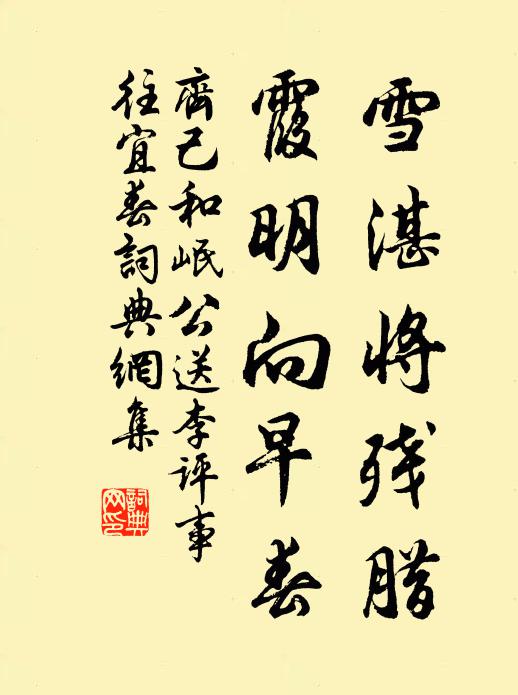 雪湛将残腊
霞明向早春
齊己和岷公送李评事
往宜春詞典網集
詞典
网印